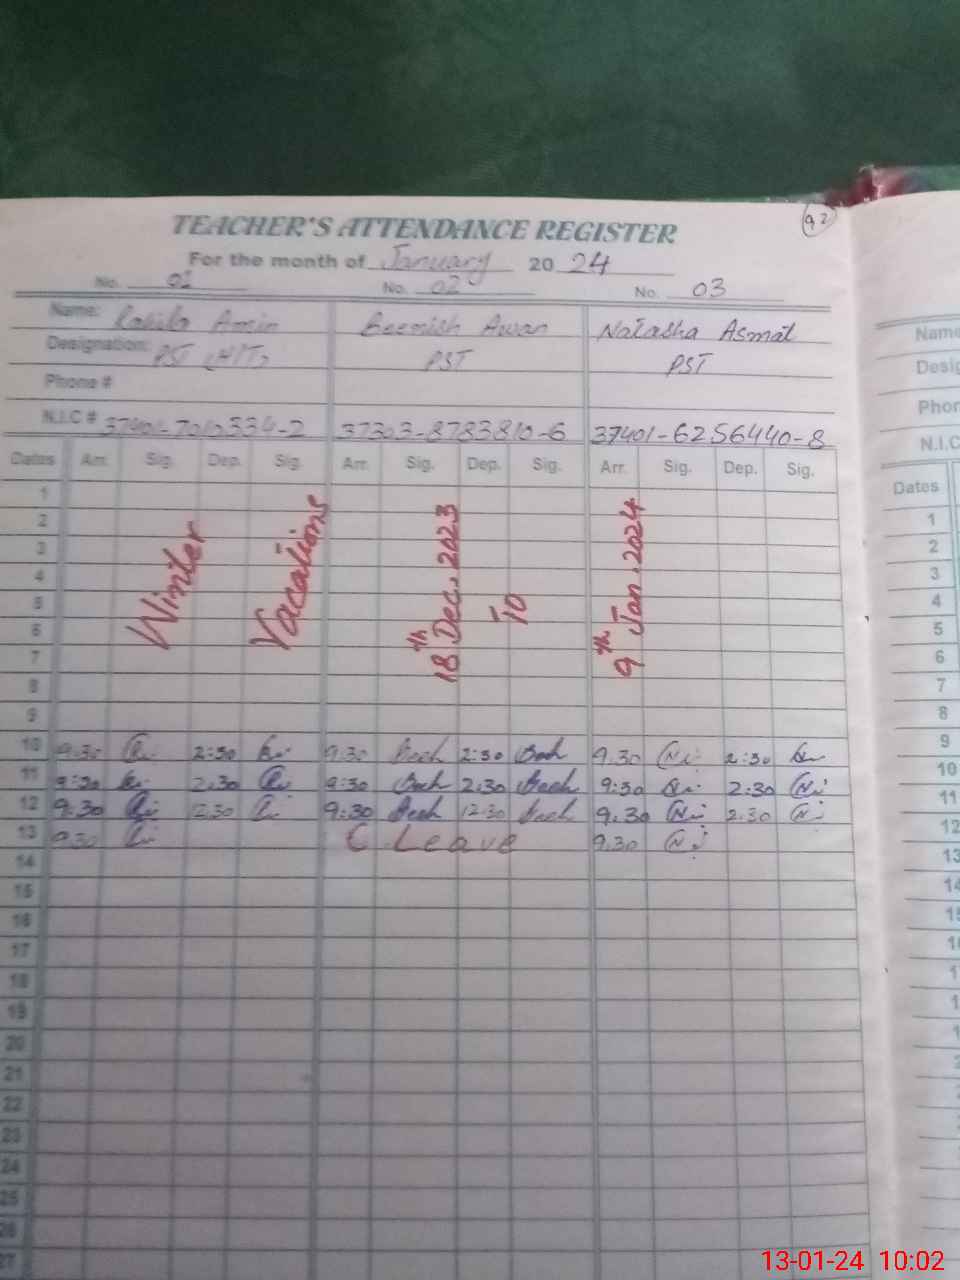 92
TEACHER'S ATTENDANCE REGISTER
For the month of January 2024
No. 01 No. 02 No. 03
Name: Amin Beenish Awan Natasha Asmat
Designation: PST (H/T) PST PST
Phone #
N.I.C # 37401-7010334-2 37303-8783810-6 37401-6256440-8
Dates Arr. Sig. Dep. Sig. Arr. Sig. Dep. Sig. Arr. Sig. Dep. Sig.
1
2
3
4
5
6
7
8
9
Winter Vacations 18th Dec. 2023 To 9th Jan. 2024
10 9.30 2:30 9.30 2:30 9.30 2:30
11 9:30 2.30 9:30 2.30 9:30 2:30
12 9.30 12.30 9:30 12.30 9.30 2:30
13 9.30 C. Leave 9.30
14
15
16
17
18
19
20
21
22
23
24
25
26
27
Name
Desig
Phon
N.I.C
Dates
1
2
3
4
5
6
7
8
9
10
11
12
13
14
13-01-24 10:02